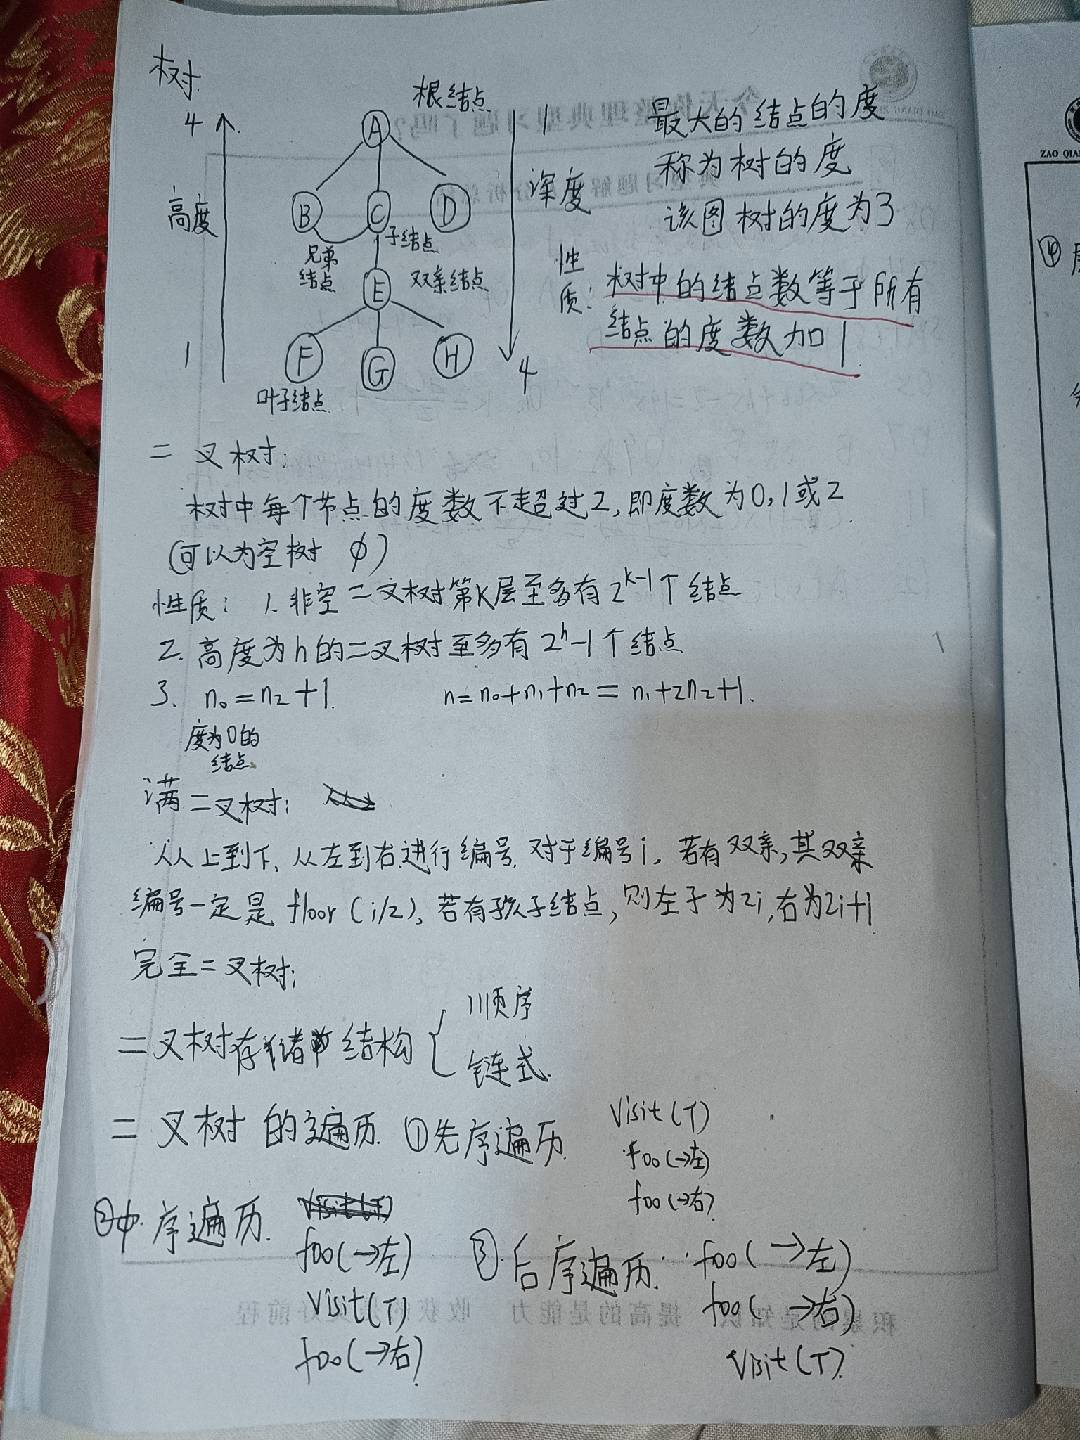 树
根结点
4
1
A
高度
深度
B
C
D
兄弟
结点
子结点
双亲结点
E
F
G
H
1
4
叶子结点
最大的结点的度
称为树的度
该图树的度为3
性质:
树中的结点数等于所有
结点的度数加1
二叉树:
树中每个节点的度数不超过2,即度数为0,1或2
(可以为空树 ∅)
性质: 1. 非空二叉树第K层至多有2^(k-1)个结点
2. 高度为h的二叉树至多有2^h-1个结点
3. n₀=n₂+1. n=n₀+n₁+n₂=n₁+2n₂+1.
度为0的
结点
满二叉树:
从上到下,从左到右进行编号.对于编号i,若有双亲,其双亲
编号一定是floor(i/2),若有孩子结点,则左子为2i,右为2i+1
完全二叉树:
二叉树存储结构
顺序
链式.
二叉树的遍历. ①先序遍历
Visit(T)
foo(→左)
foo(→右)
②中序遍历.
foo(→左)
Visit(T)
foo(→右)
③后序遍历:
foo(→左)
foo(→右)
Visit(T)
ZAO QIA
④